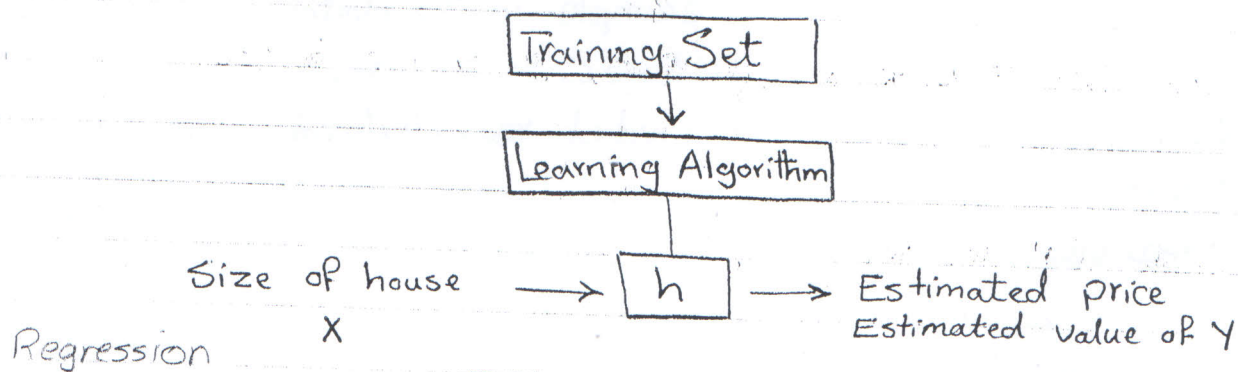 Training Set
Learning Algorithm
Size of house
h
Estimated price
X
Estimated value of Y
Regression